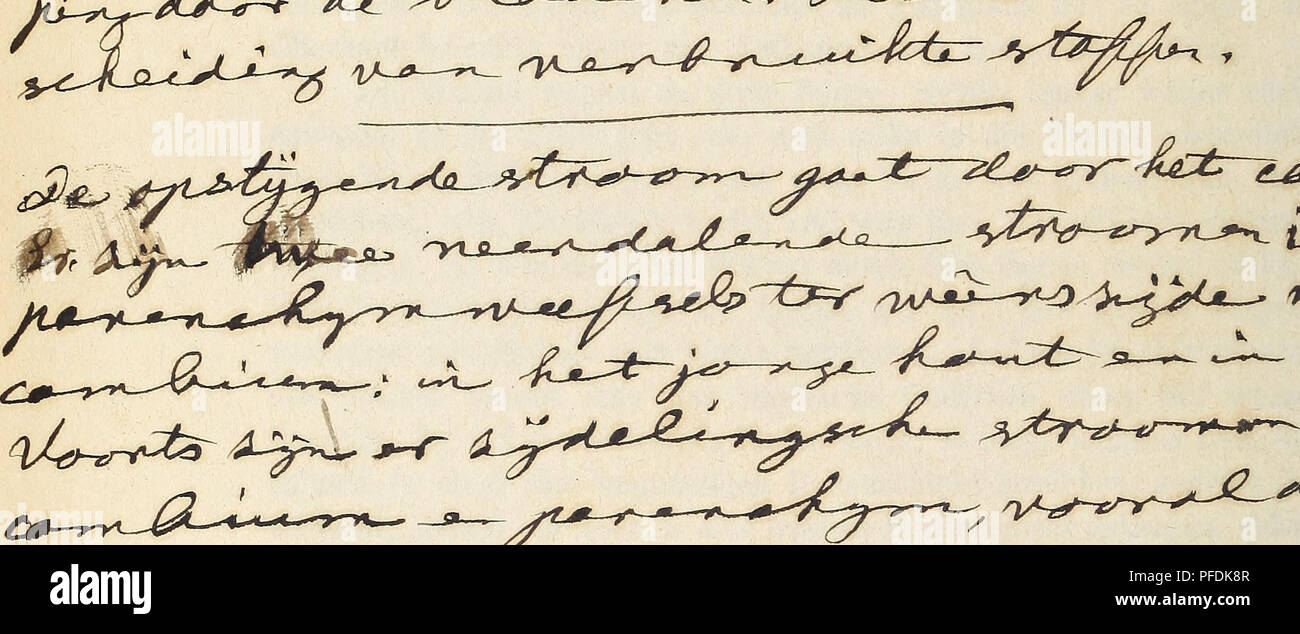 ping door de
scheiding van verbruikte stoffen.
De opstijgende stroom gaat door het
Er zijn twee neerdalende stroomen
parenchymweefsels ter wêerszijde
cambium: in het jonge hout en in
Voorts zijn er zijdelingsche stroomen
cambium en parenchym, vooral
alamy
Image ID: PFDK8R
www.alamy.com